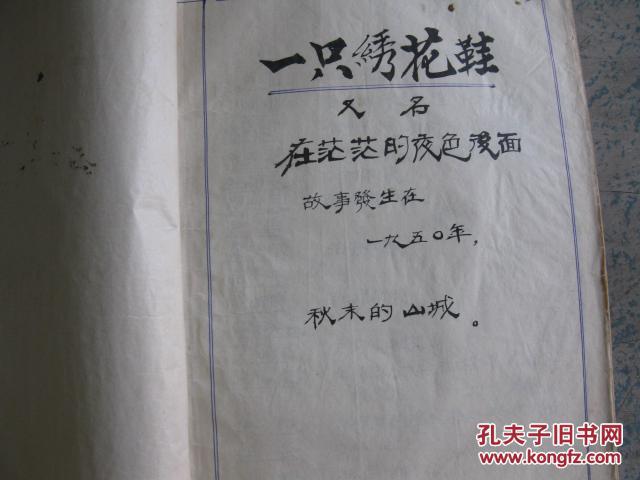 一只綉花鞋
又名
在茫茫的夜色後面
故事發生在
一九五〇年，
秋末的山城。
孔夫子旧书网
www.kongfz.com